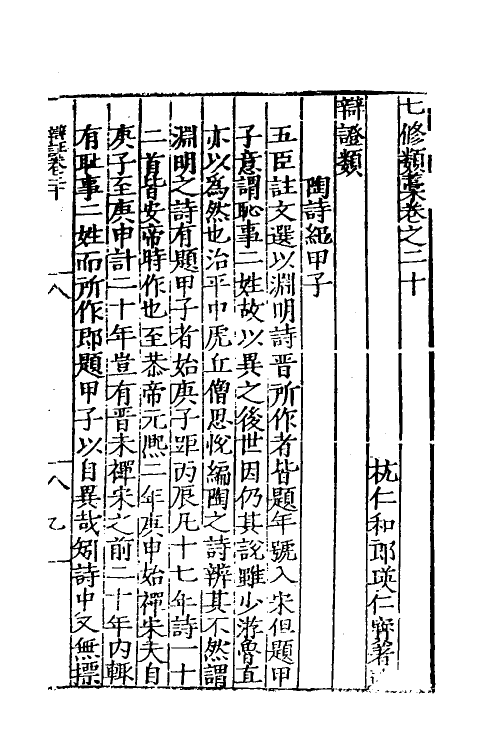 七修類藁卷之二十
杭仁和郎瑛仁寶著
辯證類
陶詩紀甲子
五臣註文選以淵明詩晋所作者皆題年號入宋但題甲
子意謂恥事二姓故以異之後世因仍其說雖少游魯直
亦以爲然也治平中虎丘僧思悅編陶之詩辨其不然謂
淵明之詩有題甲子者始庚子距丙辰凡十七年詩一十
二首皆安帝時作也至恭帝元熙二年庚申始禪宋夫自
庚子至庚申計二十年豈有晋未禪宋之前二十年內輙
有耻事二姓而所作即題甲子以自異哉矧詩中又無摽